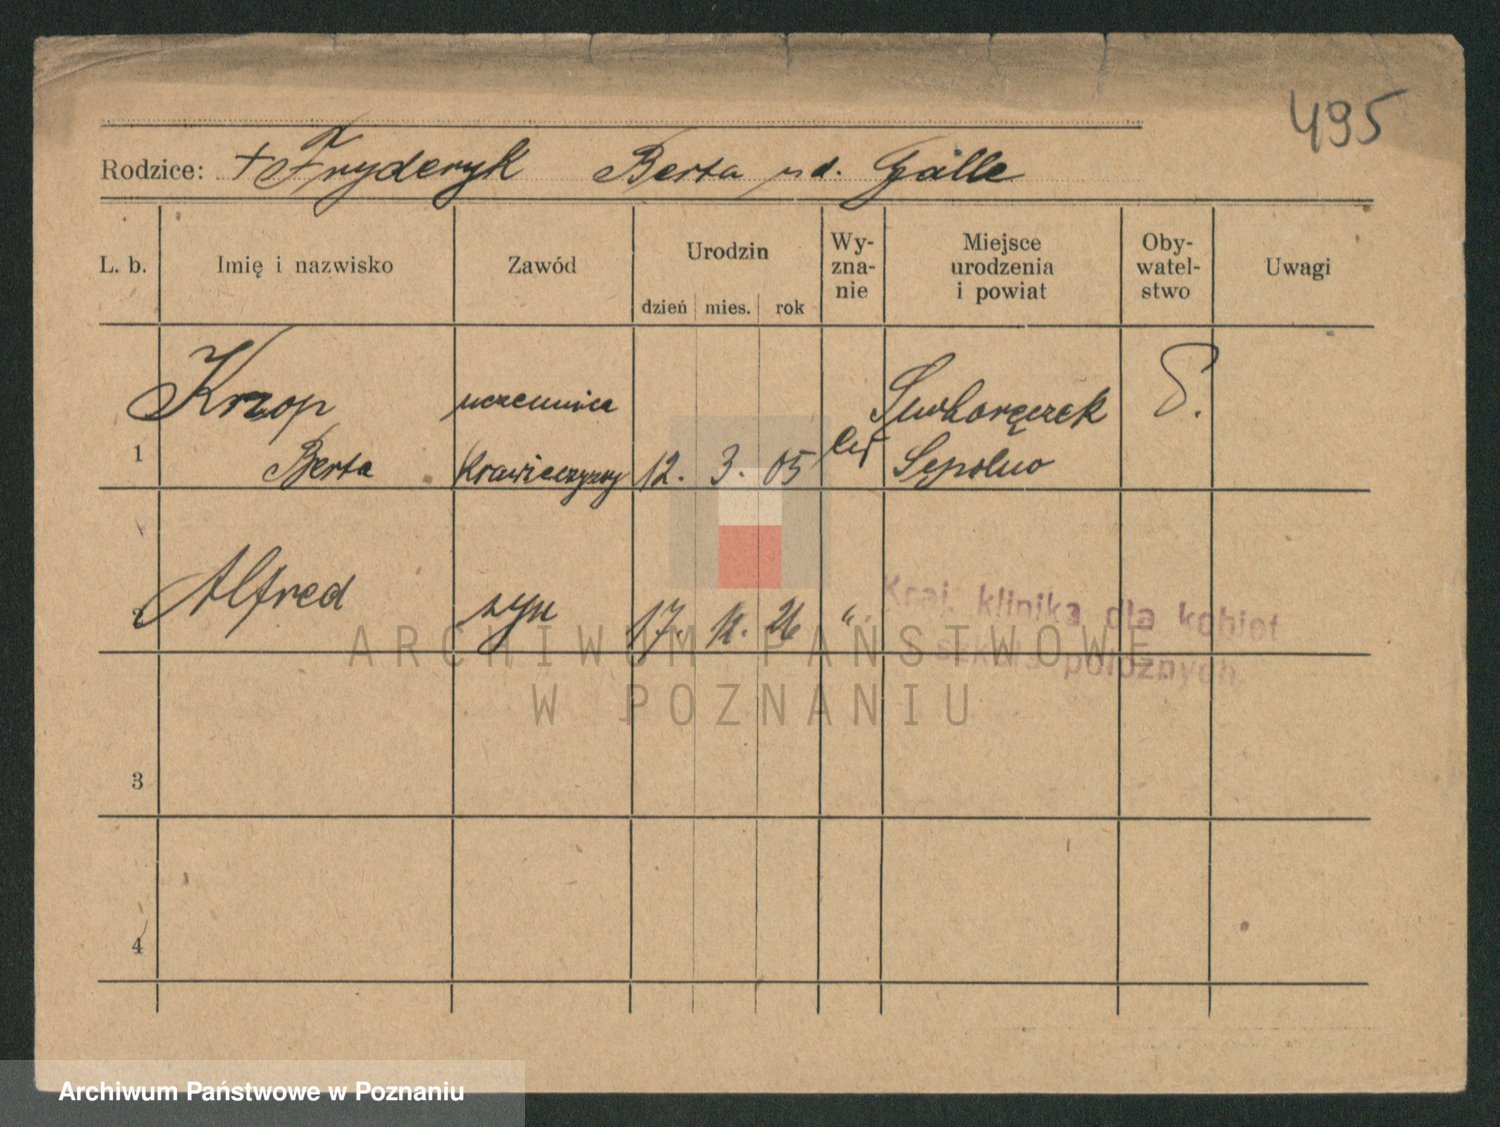 495
Rodzice: + Fryderyk Berta ud. Gälle
L. b. Imię i nazwisko Zawód Urodzin dzień mies. rok Wy-zna-nie Miejsce urodzenia i powiat Oby-watel-stwo Uwagi
Krzop uczennica
1 Berta krawieczyzny 12. 3. 05 Sępolno
2 Alfred syn 17. 26 "
Kraj. klinika dla kobiet
położnych.
ARCHIWUM PAŃSTWOWE
W POZNANIU
3
4
Archiwum Państwowe w Poznaniu